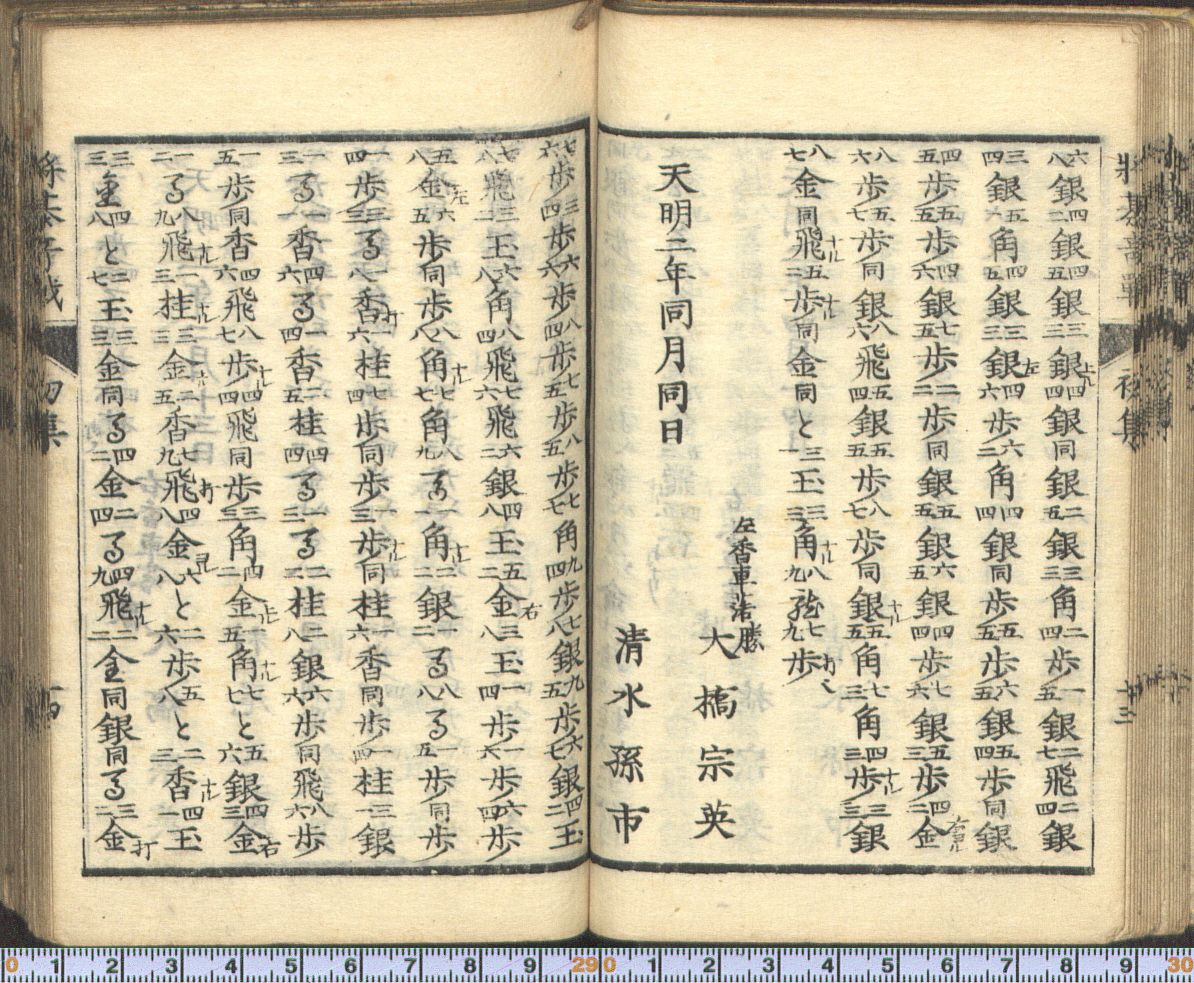 六八銀四二銀四五銀三三銀上ル四四銀同銀二五銀三三角二四歩一五銀二七飛二四銀
三四銀五角四五銀三三銀左四六歩六二角四四銀同歩五五歩六五銀五四歩同銀
四五歩五五歩四六歩七五歩二二歩同銀五五銀六五銀四四歩七六銀五三歩四二金右ヨル
八六歩五七歩同銀八六飛五四銀五五歩八七歩同銀ナル五五角七三角四三歩ナル三三銀
八七金同飛ナル五二歩ナル同金同と三玉三三角ナル八九龍七九歩打
左香車落勝
大橋宗英
天明二年同月同日
清水孫市
七六歩三四歩六六歩八四歩七五歩八五歩七七角九四歩七八銀九五歩六七銀四二玉
七八飛三二玉六八角八四飛七六飛六二銀四八玉五二金右三八玉一四歩一六歩六四歩
五八金左六五歩同歩八八角ナル七七角八九馬一一角ナル二二銀一二馬八八馬一五歩同歩
一四歩三三馬一八香打六桂七四歩同歩三歩ナル同桂一六香同歩一四桂三一銀
一三馬一一香四六馬四香二五桂四四馬三一馬二二桂二八銀六六歩同飛八六歩
一五歩同香四六飛八七歩ナル四四飛同歩三三角四二金上ル五五角ナル七七と五六銀四三金右
一二馬八九飛ナル一三桂ナル三金ナル二五香七九飛打四八金ヨル六八と二六歩五八と二三香ナル四一玉
三三金四八と二七玉三三金同馬四二金二四馬四九飛ナル二二金同銀同馬三二金打